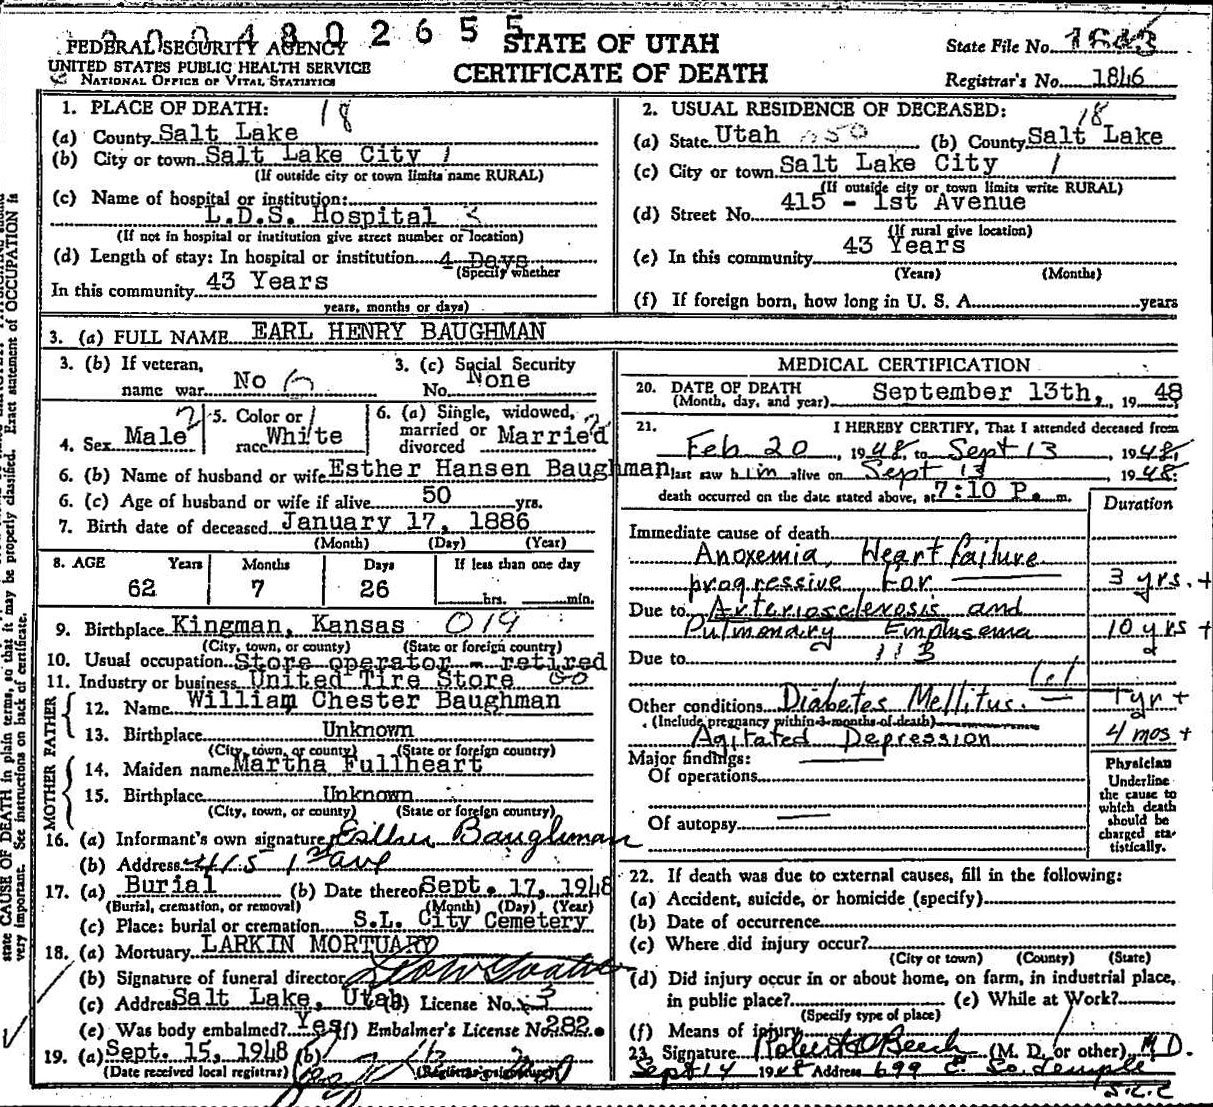 0 0 4 8 0 2 6 5 5
FEDERAL SECURITY AGENCY
UNITED STATES PUBLIC HEALTH SERVICE
NATIONAL OFFICE OF VITAL STATISTICS
STATE OF UTAH
CERTIFICATE OF DEATH
State File No. 1643
Registrar's No. 1846
1. PLACE OF DEATH: 18
(a) County Salt Lake
(b) City or town Salt Lake City 1
(If outside city or town limits name RURAL)
(c) Name of hospital or institution:
L.D.S. Hospital
(If not in hospital or institution give street number or location)
(d) Length of stay: In hospital or institution 4 Days
(Specify whether
In this community 43 Years
years, months or days)
2. USUAL RESIDENCE OF DECEASED:
18
(a) State Utah 050 (b) County Salt Lake
(c) City or town Salt Lake City 1
(If outside city or town limits write RURAL)
(d) Street No. 415 - 1st Avenue
(If rural give location)
(e) In this community 43 Years
(Years) (Months)
(f) If foreign born, how long in U. S. A. years
3. (a) FULL NAME EARL HENRY BAUGHMAN
3. (b) If veteran,
name war No
3. (c) Social Security
No. None
4. Sex Male 2
5. Color or
race White 1
6. (a) Single, widowed,
married or
divorced Married 2
6. (b) Name of husband or wife Esther Hansen Baughman
6. (c) Age of husband or wife if alive 50 yrs.
7. Birth date of deceased January 17, 1886
(Month) (Day) (Year)
8. AGE Years Months Days If less than one day
62 7 26 hrs. min.
9. Birthplace Kingman, Kansas 019
(City, town, or county) (State or foreign country)
10. Usual occupation Store operator - retired
11. Industry or business United Tire Store
MOTHER FATHER
12. Name William Chester Baughman
13. Birthplace Unknown
(City, town, or county) (State or foreign country)
14. Maiden name Martha Fullheart
15. Birthplace Unknown
(City, town, or county) (State or foreign country)
16. (a) Informant's own signature Esther Baughman
(b) Address 415 1st ave
17. (a) Burial (b) Date thereof Sept. 17, 1948
(Burial, cremation, or removal) (Month) (Day) (Year)
(c) Place: burial or cremation S.L. City Cemetery
18. (a) Mortuary LARKIN MORTUARY
(b) Signature of funeral director
(c) Address Salt Lake, Utah (d) License No. 3
(e) Was body embalmed? Yes (f) Embalmer's License No. 282.
19. (a) Sept. 15, 1948 (b)
(Date received local registrar) (Registrar's signature)
MEDICAL CERTIFICATION
20. DATE OF DEATH
(Month, day, and year) September 13th, 19 48
21. I HEREBY CERTIFY, That I attended deceased from
Feb 20, 1948, to Sept 13, 1948,
last saw him alive on Sept 13, 1948.
death occurred on the date stated above, at 7:10 P. m.
Duration
Immediate cause of death
Anoxemia, Heart failure
progressive for 3 yrs. +
Due to Arteriosclerosis and
Pulmonary Emphsema 10 yrs +
Due to 113
Other conditions Diabetes Mellitus. 1 yr +
(Include pregnancy within 3 months of death)
Agitated Depression 4 mos +
Major findings:
Of operations
Of autopsy
Physician
Underline
the cause to
which death
should be
charged sta-
tistically.
22. If death was due to external causes, fill in the following:
(a) Accident, suicide, or homicide (specify)
(b) Date of occurrence
(c) Where did injury occur?
(City or town) (County) (State)
(d) Did injury occur in or about home, on farm, in industrial place,
in public place? (e) While at Work?
(Specify type of place)
(f) Means of injury
23. Signature Robert O Beech (M. D. or other) M D.
Sept 14 1948 Address 699 E So. Temple
S.L.C
state CAUSE OF DEATH in plain terms, so that it may be properly classified. Exact statement of OCCUPATION is
very important. See instructions on back of certificate.